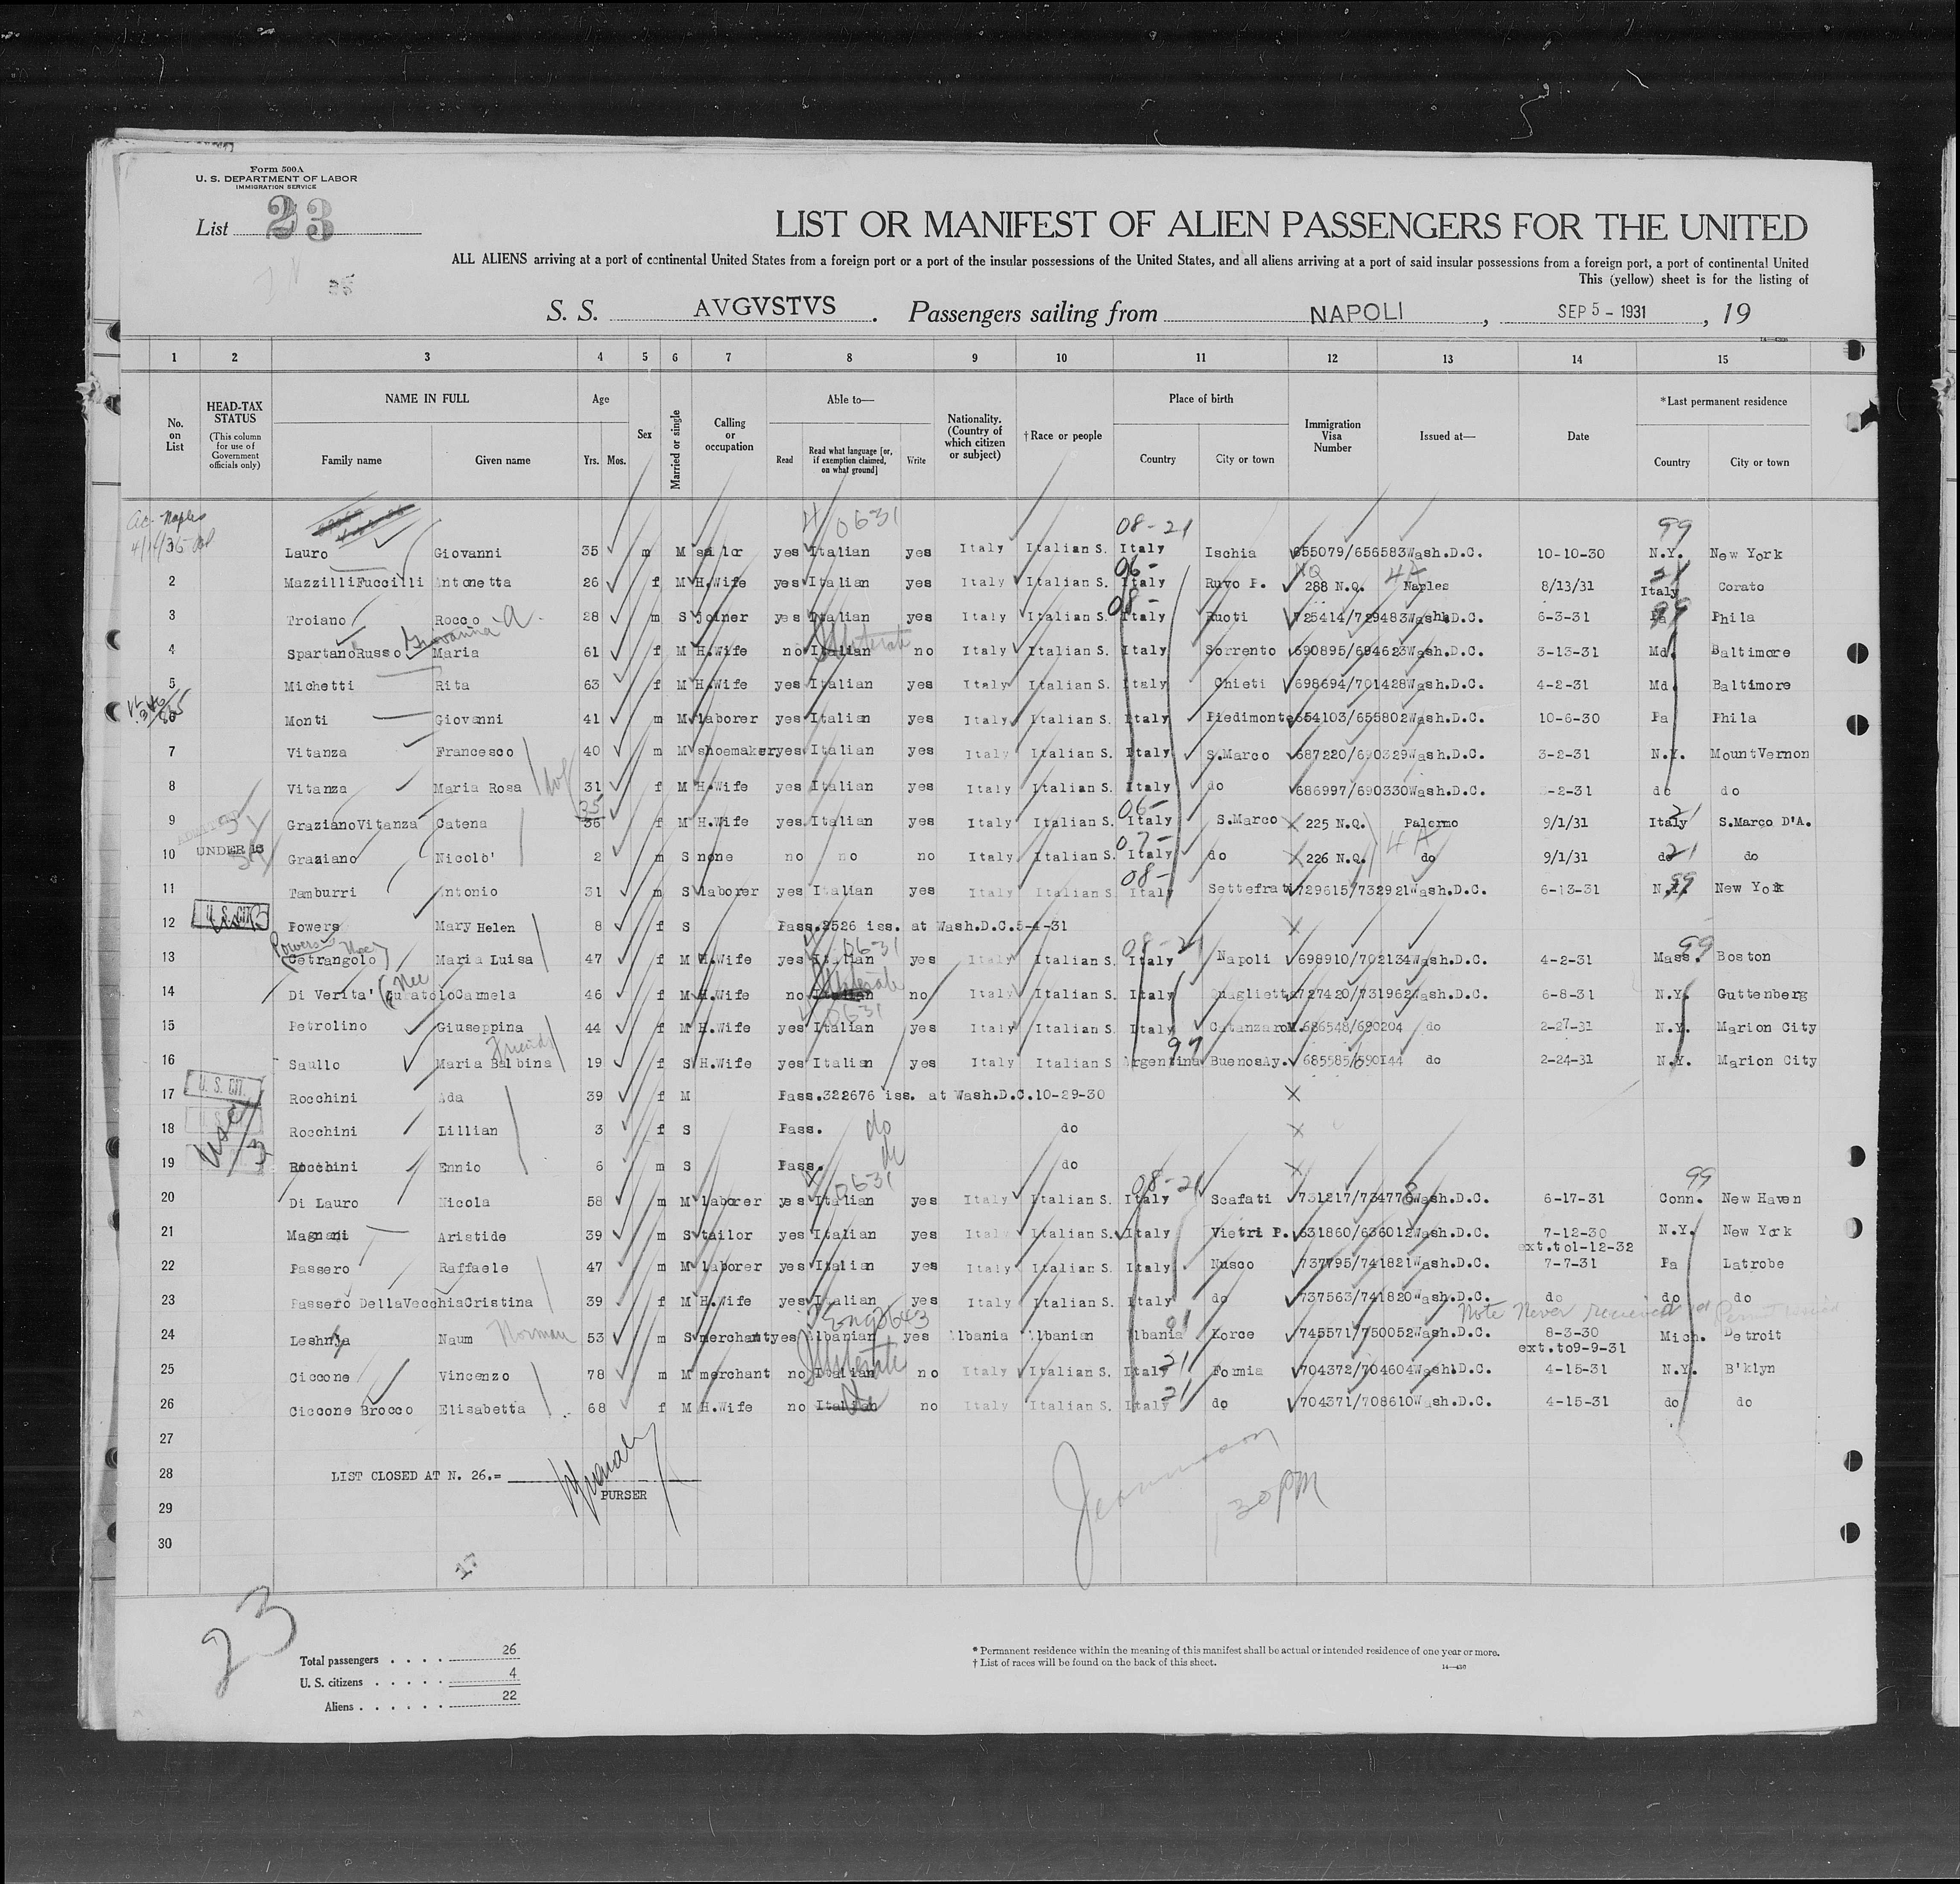 Form 500A
U. S. DEPARTMENT OF LABOR
IMMIGRATION SERVICE
List 23
LIST OR MANIFEST OF ALIEN PASSENGERS FOR THE UNITED
ALL ALIENS arriving at a port of continental United States from a foreign port or a port of the insular possessions of the United States, and all aliens arriving at a port of said insular possessions from a foreign port, a port of continental United
This (yellow) sheet is for the listing of
S. S. AVGVSTVS . Passengers sailing from NAPOLI , SEP 5 - 1931 , 19
1 2 3 4 5 6 7 8 9 10 11 12 13 14 15
No. on List HEAD-TAX STATUS (This column for use of Government officials only) NAME IN FULL Family name Given name Age Yrs. Mos. Sex Married or single Calling or occupation Able to— Read Read what language [or, if exemption claimed, on what ground] Write Nationality. (Country of which citizen or subject) †Race or people Place of birth Country City or town Immigration Visa Number Issued at— Date *Last permanent residence Country City or town
Naples 0631 08-21 99
Lauro Giovanni 35 m M sailor yes Italian yes Italy Italian S. Italy Ischia 655079/656583 Wash.D.C. 10-10-30 N.Y. New York
06- NQ 4A 21
2 MazzilliFuccilli Antonetta 26 f M H.Wife yes Italian yes Italy Italian S. Italy Ruvo P. 288 N.Q. Naples 8/13/31 Italy Corato
08- 99
3 Troiano Rocco A. 28 m S joiner yes Italian yes Italy Italian S. Italy Ruoti 725414/729483 Wash.D.C. 6-3-31 Pa Phila
Giovanna Illiterate
4 SpartanoRusso Maria 61 f M H.Wife no Italian no Italy Italian S. Italy Sorrento 690895/694623 Wash.D.C. 3-13-31 Md. Baltimore
5 Michetti Rita 63 f M H.Wife yes Italian yes Italy Italian S. Italy Chieti 698694/701428 Wash.D.C. 4-2-31 Md. Baltimore
6 Monti Giovanni 41 m M laborer yes Italian yes Italy Italian S. Italy Piedimonte 654103/655802 Wash.D.C. 10-6-30 Pa Phila
7 Vitanza Francesco 40 m M shoemaker yes Italian yes Italy Italian S. Italy S.Marco 687220/690329 Wash.D.C. 3-2-31 N.Y. MountVernon
8 Vitanza Maria Rosa 31 f M H.Wife yes Italian yes Italy Italian S. Italy do 686997/690330 Wash.D.C. -2-31 do do
35 06- 21
9 GrazianoVitanza Catena 36 f M H.Wife yes Italian yes Italy Italian S. Italy S.Marco 225 N.Q. Palermo 9/1/31 Italy S.Marco D'A.
07- 4A 21
10 UNDER 16 Graziano Nicolo' 2 m S none no no no Italy Italian S. Italy do 226 N.Q. do 9/1/31 do do
08- 99
11 Tamburri Antonio 31 m S laborer yes Italian yes Italy Italian S. Italy Settefrati 729615/732921 Wash.D.C. 6-13-31 N.Y. New York
12 U. S. CIT. Powers Mary Helen 8 f S Pass.2526 iss. at Wash.D.C.5-4-31
Powers Nee 0631 08-21 99
13 (Cetrangolo) Maria Luisa 47 f M H.Wife yes Italian yes Italy Italian S. Italy Napoli 698910/702134 Wash.D.C. 4-2-31 Mass. Boston
Nee Illiterate
14 Di Verita' (Curatolo Carmela 46 f M H.Wife no Italian no Italy Italian S. Italy Quaglietta 727420/731962 Wash.D.C. 6-8-31 N.Y. Guttenberg
0631
15 Petrolino Giuseppina 44 f M H.Wife yes Italian yes Italy Italian S. Italy CatanzaroM. 686548/690204 do 2-27-31 N.Y. Marion City
Friend 97
16 Saullo Maria Balbina 19 f S H.Wife yes Italian yes Italy Italian S Argentina BuenosAy. 685585/690144 do 2-24-31 N.Y. Marion City
17 U. S. CIT. Rocchini Ada 39 f M Pass.322676 iss. at Wash.D.C.10-29-30
18 Rocchini Lillian 3 f S Pass. do do
19 Rocchini Ennio 6 m S Pass. do do
0631 08-21 99
20 Di Lauro Nicola 58 m M laborer yes Italian yes Italy Italian S. Italy Scafati 731217/734778 Wash.D.C. 6-17-31 Conn. New Haven
21 Magnani Aristide 39 m S tailor yes Italian yes Italy Italian S. Italy Vietri P. 631860/636012 Wash.D.C. 7-12-30 N.Y. New York
ext.to1-12-32
22 Passero Raffaele 47 m M laborer yes Italian yes Italy Italian S. Italy Nusco 737795/741821 Wash.D.C. 7-7-31 Pa Latrobe
23 Passero DellaVecchia Cristina 39 f M H.Wife yes Italian yes Italy Italian S. Italy do 737563/741820 Wash.D.C. do do do
Note Never received
24 Leshnja Naum Norman 53 m S merchant yes Albanian yes Albania Albanian Albania Korce 745571/750052 Wash.D.C. 8-3-30 Mich. Detroit
ext.to9-9-31
Illiterate 21
25 Ciccone Vincenzo 78 m M merchant no Italian no Italy Italian S. Italy Formia 704372/704604 Wash.D.C. 4-15-31 N.Y. B'klyn
21
26 Ciccone Brocco Elisabetta 68 f M H.Wife no Italian no Italy Italian S. Italy do 704371/708610 Wash.D.C. 4-15-31 do do
27
28 LIST CLOSED AT N. 26.=
PURSER
29
30
130 PM
23
Total passengers . . . . 26
U. S. citizens . . . . . 4
Aliens . . . . . . 22
* Permanent residence within the meaning of this manifest shall be actual or intended residence of one year or more.
† List of races will be found on the back of this sheet.
14—430